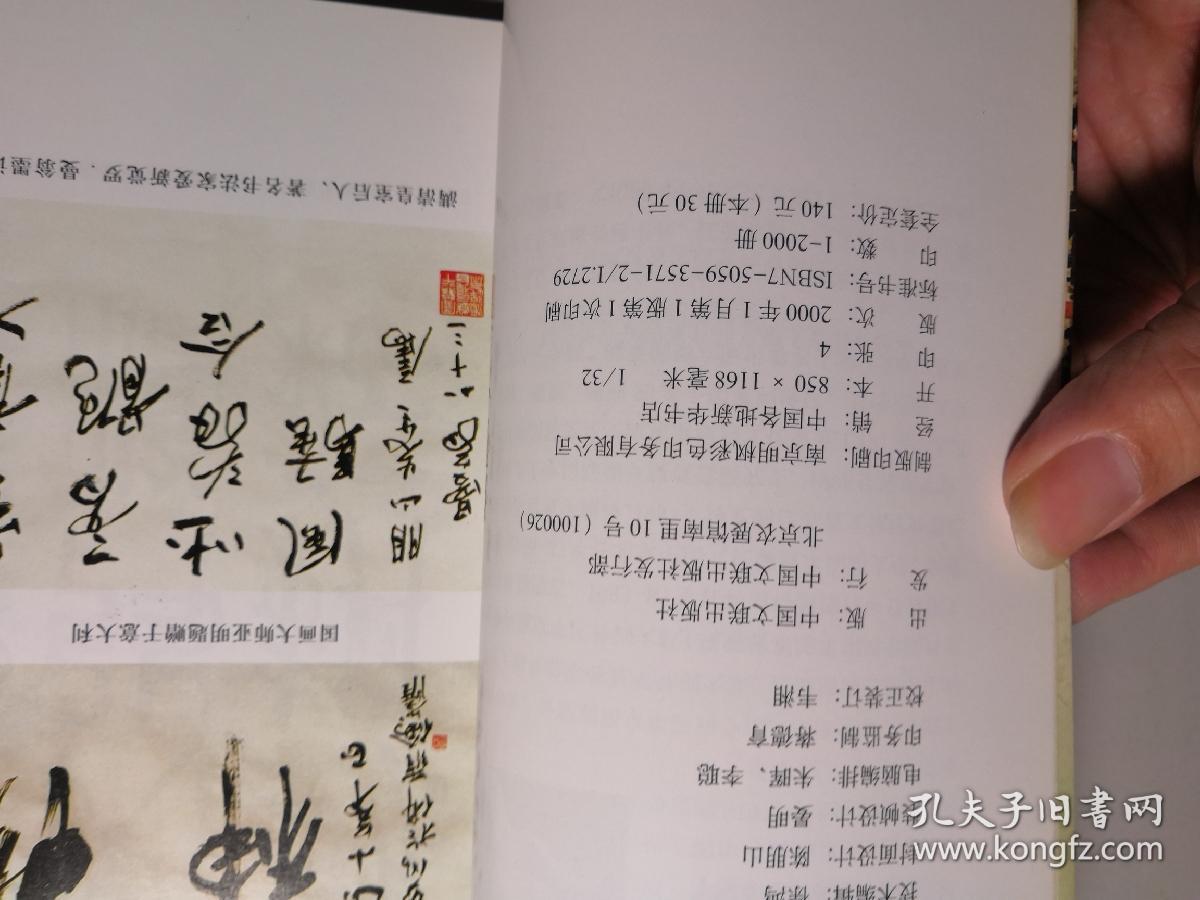 技术编辑：徐鸿
封面设计：陈朋山
装帧设计：晏明
电脑编排：朱晖、李聪
印务监制：蒋德育
校正装订：韦湘
出　版：中国文联出版社
发　行：中国文联出版社发行部
北京农展馆南里10号（100026）
制版印刷：南京明枫彩色印务有限公司
经　销：中国各地新华书店
开　本：850 × 1168毫米　1/32
印　张：4
版　次：2000年1月第1版第1次印刷
标准书号：ISBN7-5059-3571-2/I.2729
印　数：1-2000册
全套定价：140元（本册30元）
国画大师亚明题赠于意大利
满清皇室后人、著名书法家爱新觉罗．曼翁墨
孔夫子旧书网
www.kongfz.com